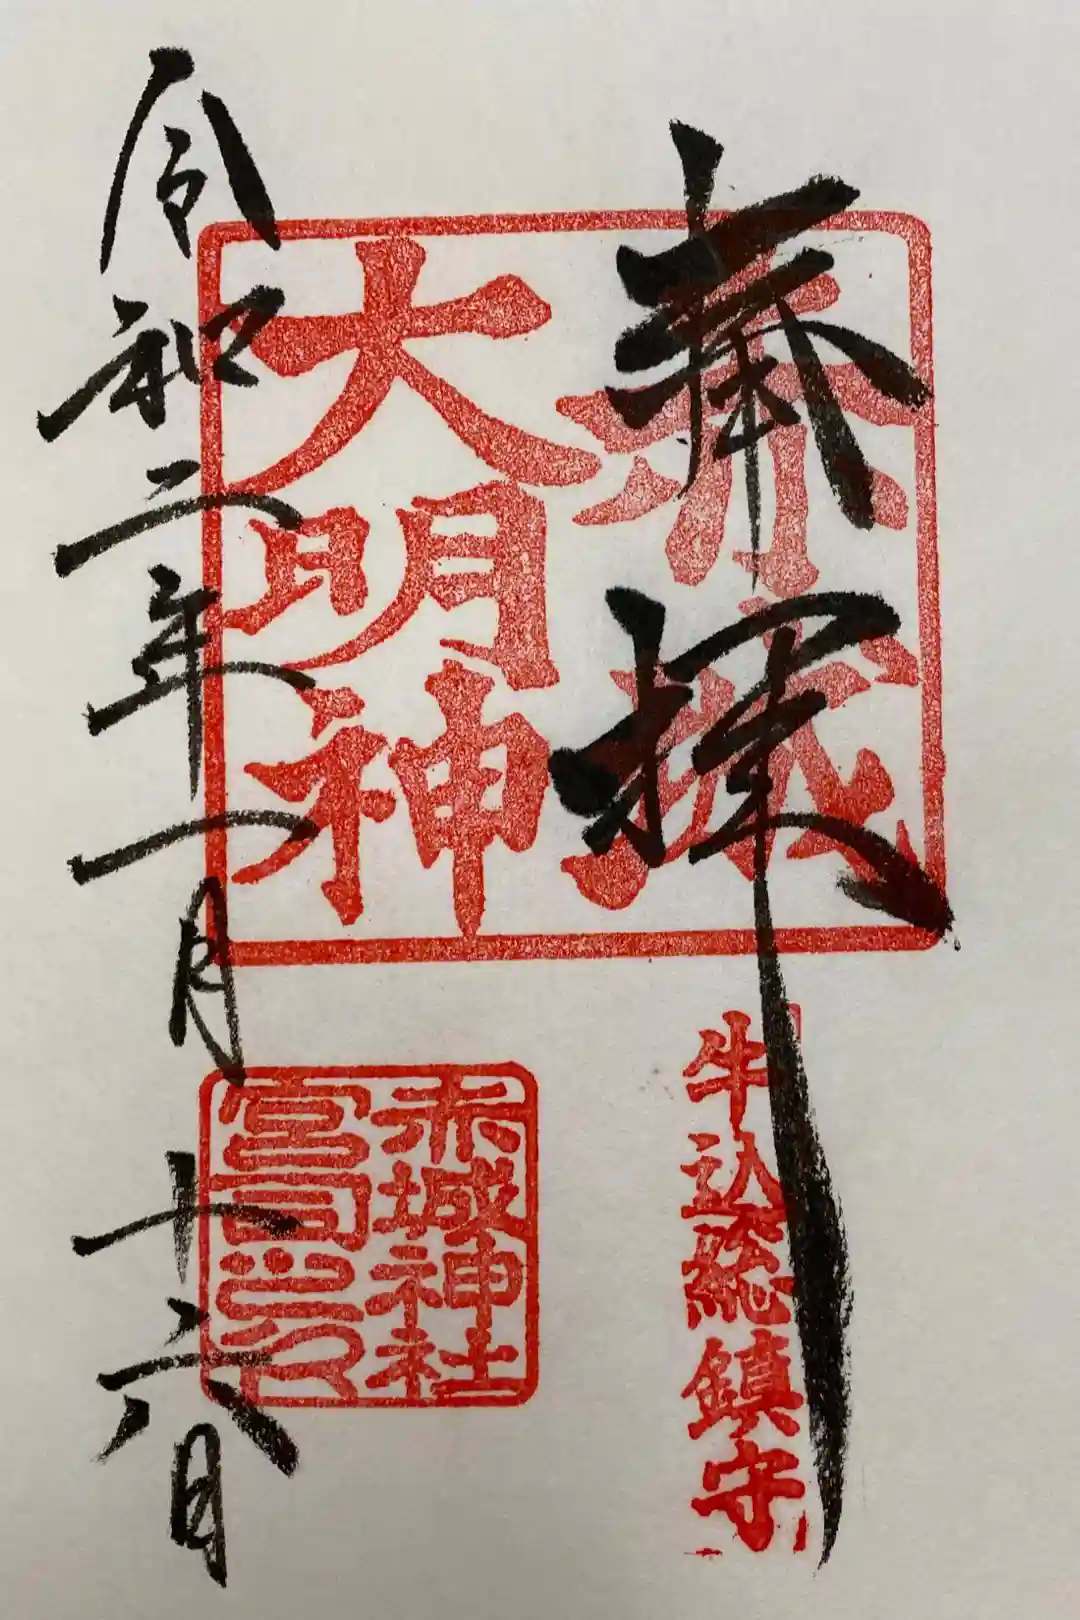 奉拝
赤城
大明神
牛込総鎮守
赤城神社
宮司之印
令和二年一月十六日